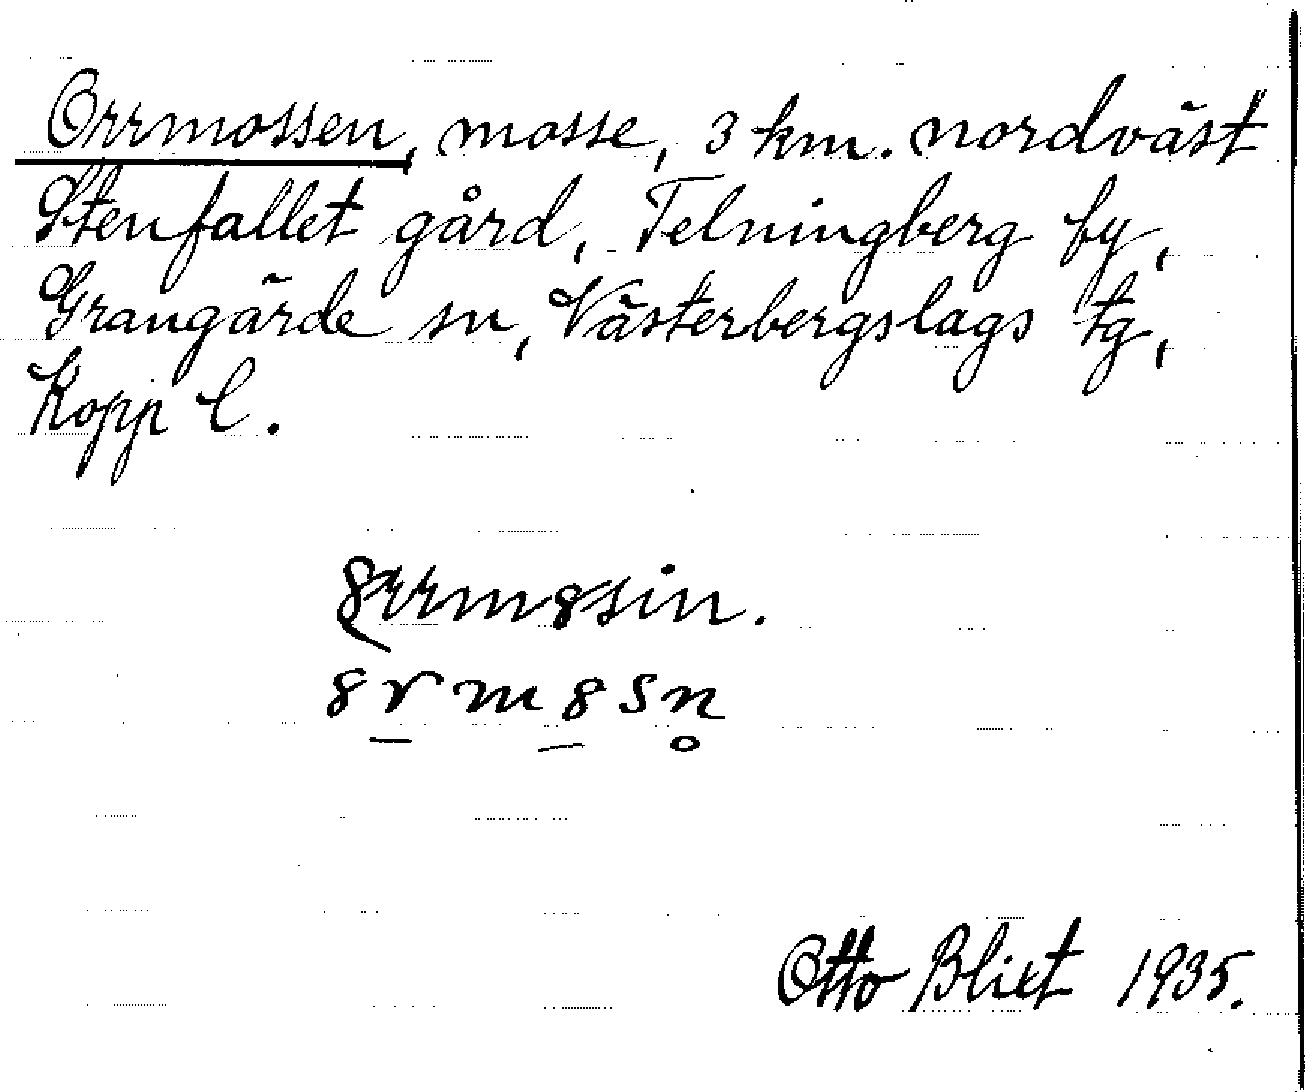 Orrmossen, mosse, 3 km. nordväst
Stenfallet gård, Telningberg by,
Grangärde sn, Västerbergslags tg,
Kopp l.
8rrm8sin.
8 r m 8 s n
Otto Blixt 1935.